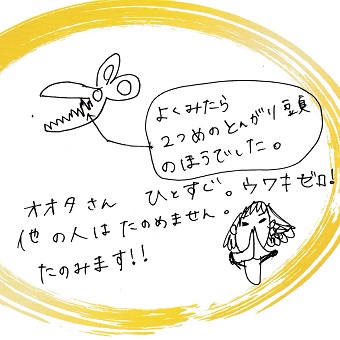 よくみたら
2つめのとんがり頭
のほうでした。
ひとすじ。ウワキゼロ!
オオタさん
他の人はたのめません。
たのみます!!